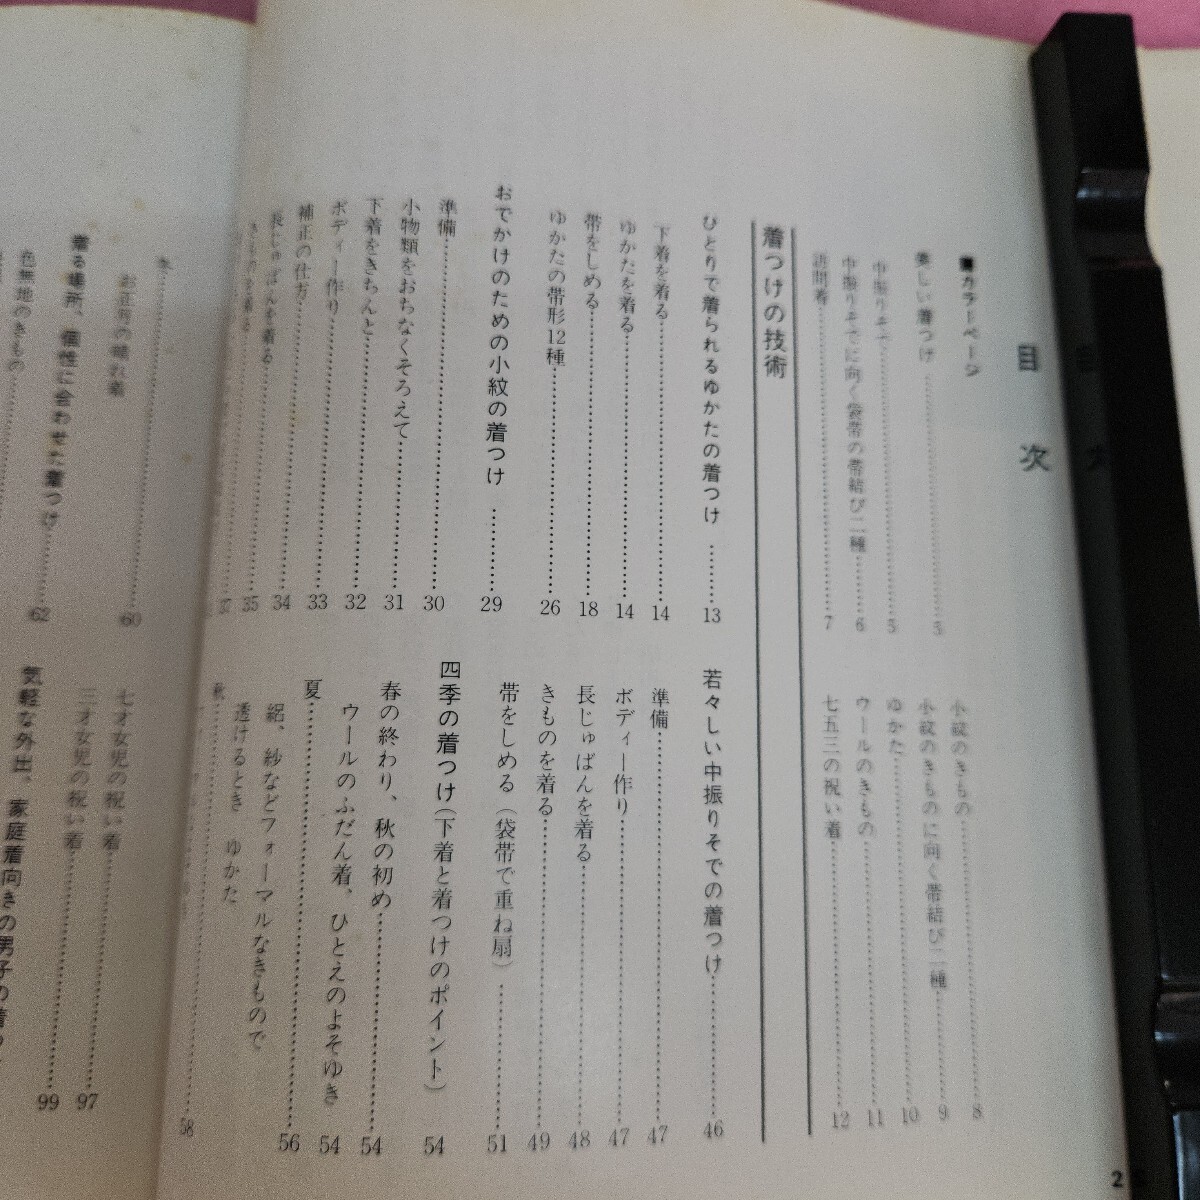 目次
■カラーページ
美しい着つけ……5
中振りそで……5
中振りそでに向く袋帯の帯結び二種……6
訪問着……7
小紋のきもの……8
小紋のきものに向く帯結び二種……9
ゆかた……10
ウールのきもの……11
七五三の祝い着……12
着つけの技術
ひとりで着られるゆかたの着つけ……13
下着を着る……14
ゆかたを着る……14
帯をしめる……18
ゆかたの帯形12種……26
おでかけのための小紋の着つけ……29
準備……30
小物類をおちなくそろえて……31
下着をきちんと……32
ボディー作り……33
補正の仕方……34
長じゅばんを着る……35
きものを着る……37
若々しい中振りそでの着つけ……46
準備……47
ボディー作り……47
長じゅばんを着る……48
きものを着る……49
帯をしめる（袋帯で重ね扇）……51
四季の着つけ（下着と着つけのポイント）……54
春の終わり、秋の初め……54
ウールのふだん着、ひとえのよそゆき……54
夏……56
絽、紗などフォーマルなきもので
透けるとき　ゆかた
秋……58
2
冬……60
お正月の晴れ着
着る場所、個性に合わせた着つけ……62
色無地のきもの
七才女児の祝い着……97
三才女児の祝い着……99
気軽な外出、家庭着向きの男子の着つ